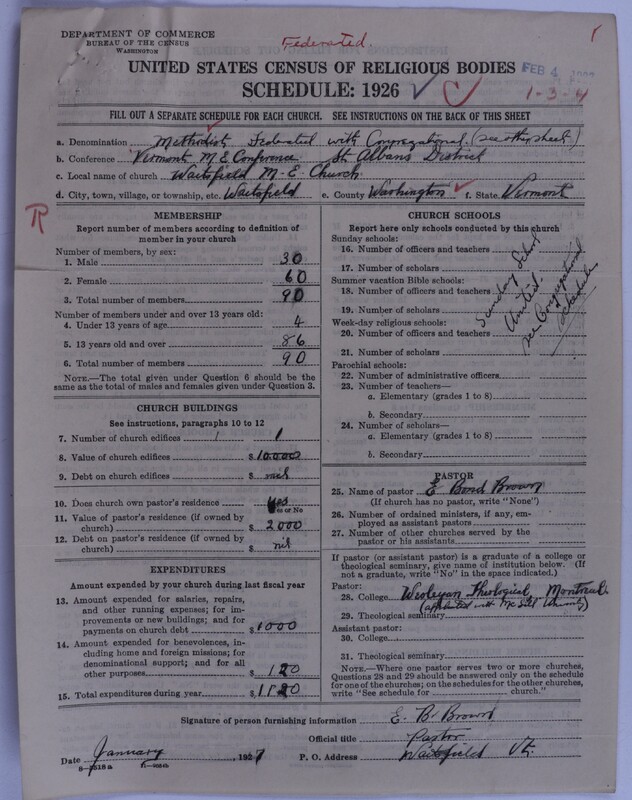 DEPARTMENT OF COMMERCE
BUREAU OF THE CENSUS
WASHINGTON
Federated.
UNITED STATES CENSUS OF RELIGIOUS BODIES
FEB 4
SCHEDULE: 1926
1-3-4
FILL OUT A SEPARATE SCHEDULE FOR EACH CHURCH. SEE INSTRUCTIONS ON THE BACK OF THIS SHEET
a. Denomination Methodist Federated with Congregational (see other sheet)
b. Conference Vermont M E Conference St Albans District
c. Local name of church Waitsfield M-E Church
d. City, town, village, or township, etc. Waitsfield e. County Washington f. State Vermont
MEMBERSHIP
Report number of members according to definition of
member in your church
Number of members, by sex:
1. Male 30
2. Female 60
3. Total number of members 90
Number of members under and over 13 years old:
4. Under 13 years of age 4
5. 13 years old and over 86
6. Total number of members 90
NOTE.—The total given under Question 6 should be
the same as the total of males and females given under Question 3.
CHURCH BUILDINGS
See instructions, paragraphs 10 to 12
7. Number of church edifices 1
8. Value of church edifices $10000
9. Debt on church edifices $
10. Does church own pastor's residence Yes
Yes or No
11. Value of pastor's residence (if owned by
church) $2000
12. Debt on pastor's residence (if owned by
church) $ nil
EXPENDITURES
Amount expended by your church during last fiscal year
13. Amount expended for salaries, repairs,
and other running expenses; for im-
provements or new buildings; and for
payments on church debt $1000
14. Amount expended for benevolences, in-
cluding home and foreign missions; for
denominational support; and for all
other purposes $120
15. Total expenditures during year $1120
CHURCH SCHOOLS
Report here only schools conducted by this church
Sunday schools:
16. Number of officers and teachers
17. Number of scholars
Summer vacation Bible schools:
18. Number of officers and teachers
19. Number of scholars
Week-day religious schools:
20. Number of officers and teachers
21. Number of scholars
Parochial schools:
22. Number of administrative officers
23. Number of teachers—
a. Elementary (grades 1 to 8)
b. Secondary
24. Number of scholars—
a. Elementary (grades 1 to 8)
b. Secondary
Sunday School
United
see Congregational
schedule
PASTOR
25. Name of pastor E Bond Brown
(If church has no pastor, write "None")
26. Number of ordained ministers, if any, em-
ployed as assistant pastors
27. Number of other churches served by the
pastor or his assistants
If pastor (or assistant pastor) is a graduate of a college or
theological seminary, give name of institution below. (If
not a graduate, write "No" in the space indicated.)
Pastor:
28. College Wesleyan Theological Montreal
(affiliated with McGill University)
29. Theological seminary
Assistant pastor:
30. College
31. Theological seminary
NOTE.—Where one pastor serves two or more churches,
Questions 28 and 29 should be answered only on the schedule
for one of the churches; on the schedules for the other churches,
write "See schedule for church."
Signature of person furnishing information E. B. Brown
Official title Pastor
Date January 1927 P. O. Address Waitsfield Vt.